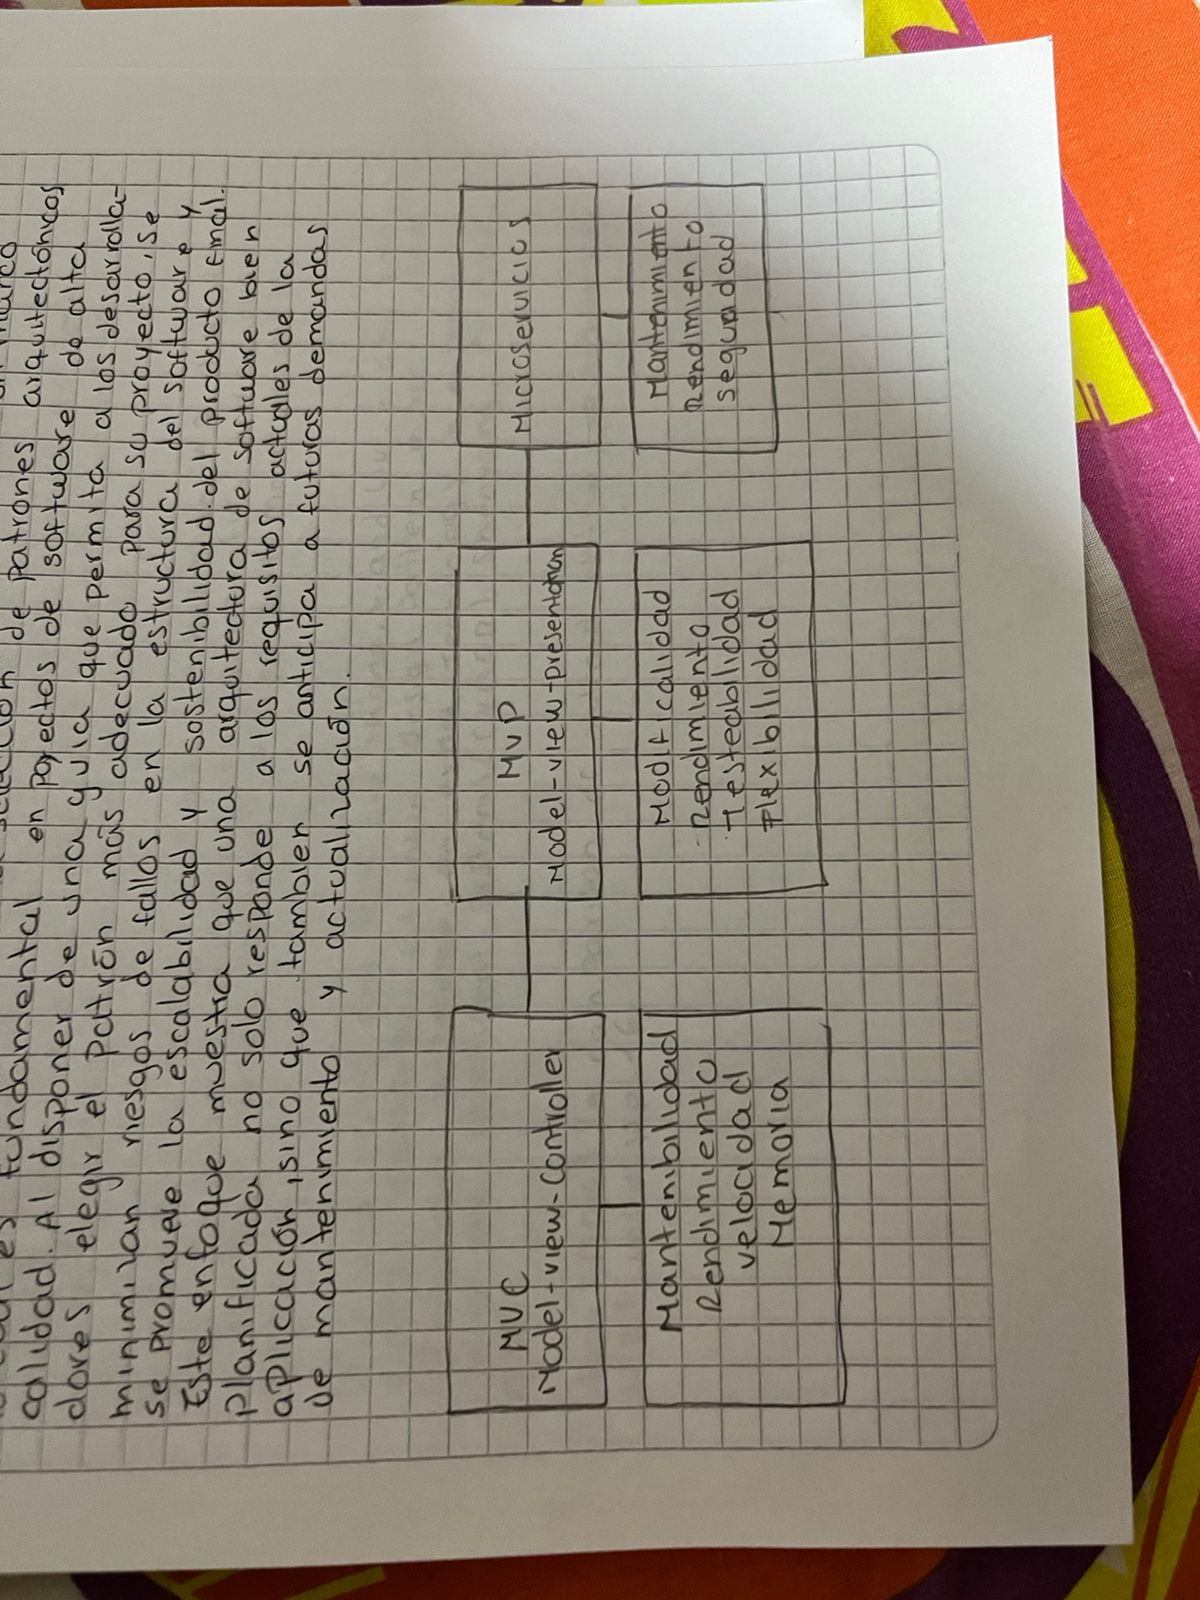 selección de patrones arquitectónicos
es fundamental en poyectos de software de alta
calidad. Al disponer de una guia que permita a los desarrolla-
dores elegir el patrón más adecuado para su proyecto, se
minimizan riesgos de fallos en la estructura del software y
se promueve la escalabilidad y sostenibilidad del producto final.
Este enfoque muestra que una arquitectura de software bien
planificada no solo responde a los requisitos actuales de la
aplicación, sino que tambien se anticipa a futuras demandas
de mantenimiento y actualización.
MVC
Model-view-Controller
MVP
Model-view-presentation
Microservicios
Mantenibilidad
Rendimiento
velocidad
Memoria
Modificalidad
Rendimiento
Testeabilidad
Flexibilidad
Mantenimiento
Rendimiento
seguridad